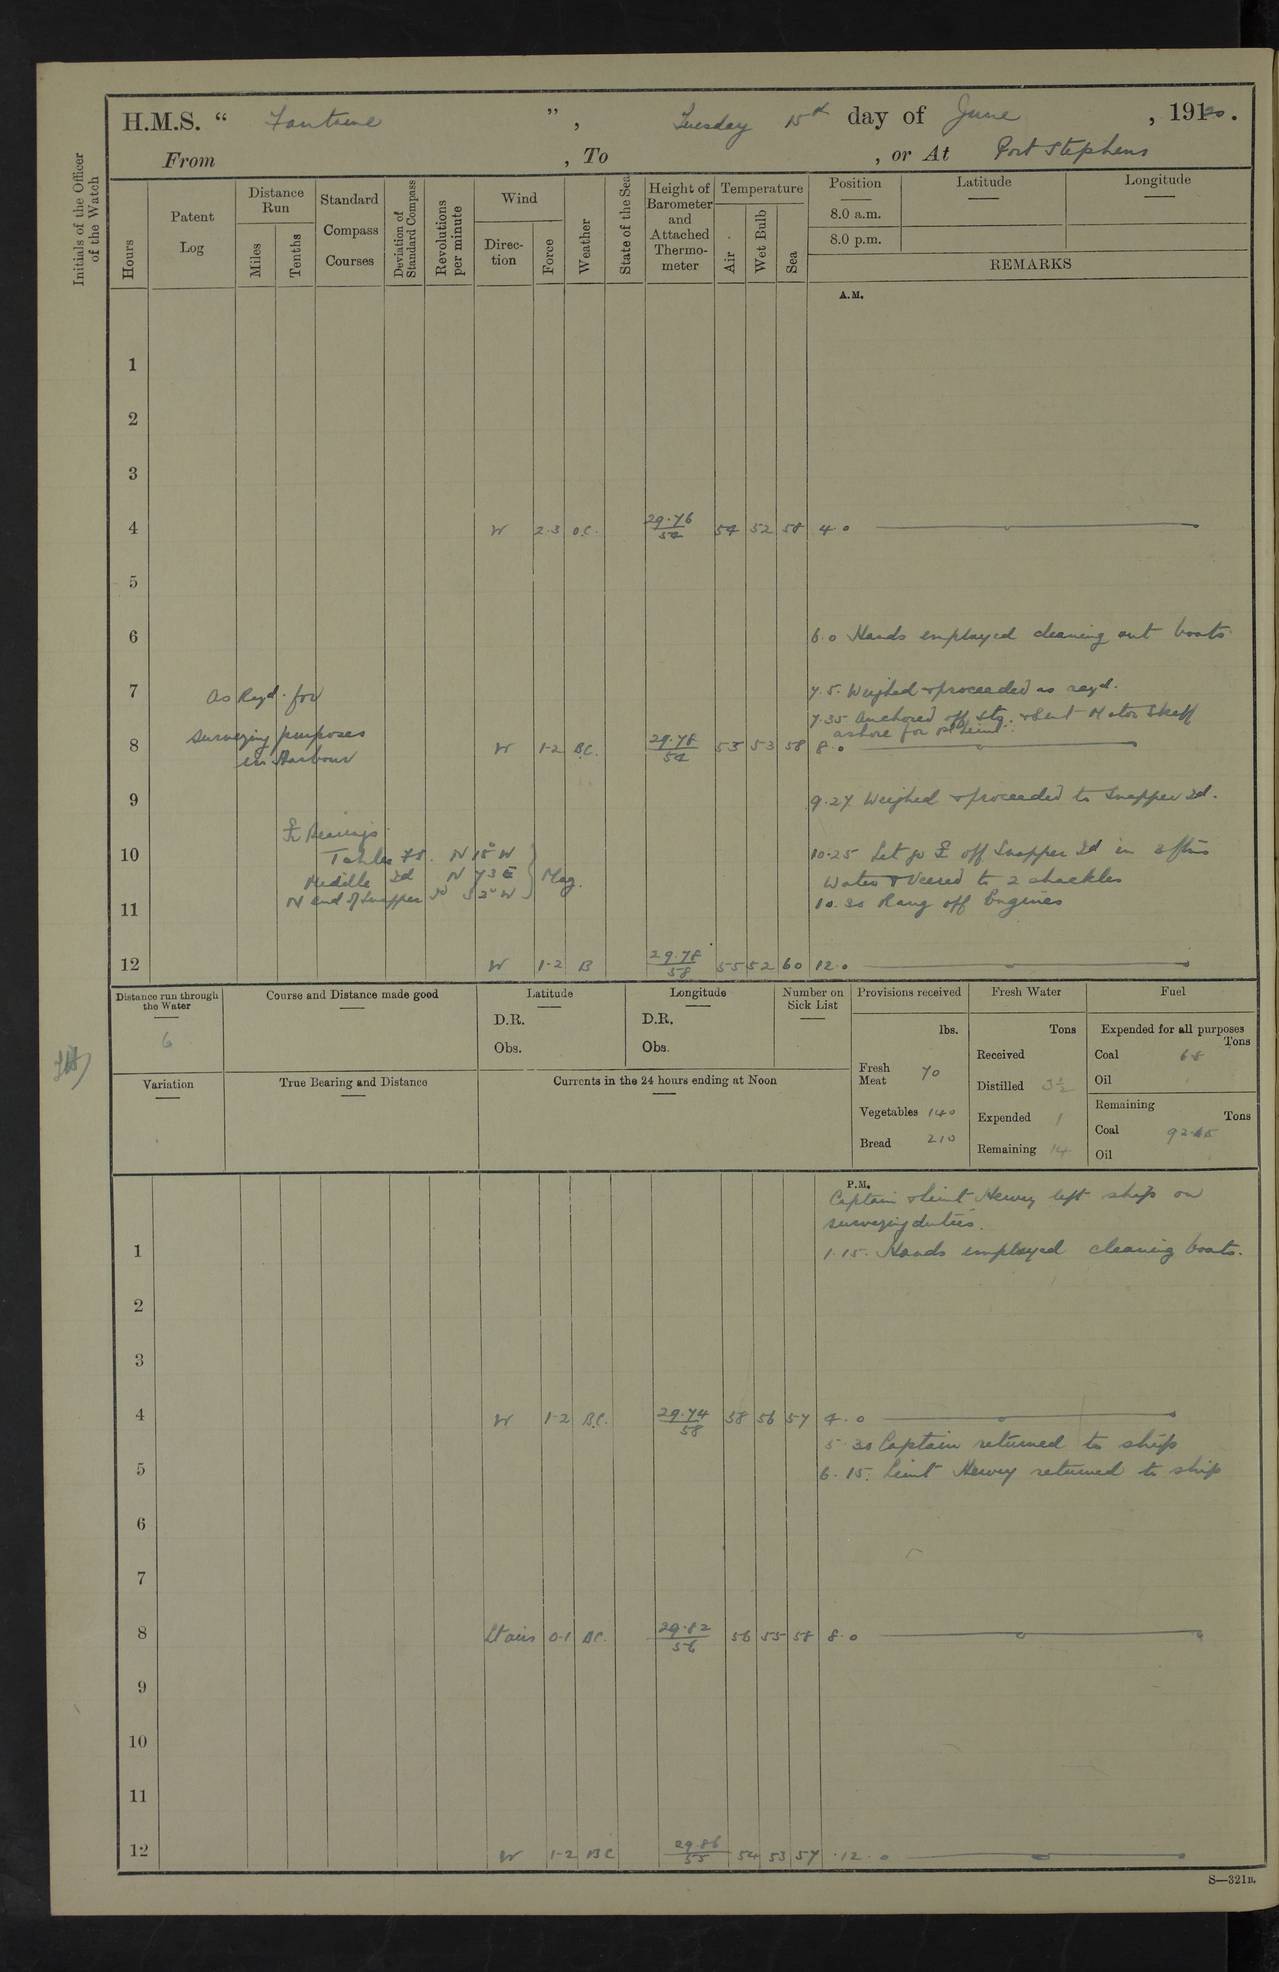 H.M.S. “ Fantome ”, Tuesday 15th day of June , 1920.
From , To , or At Port Stephens
Initials of the Officer of the Watch
Hours
Patent Log
Distance Run
Miles
Tenths
Standard Compass Courses
Deviation of Standard Compass
Revolutions per minute
Wind
Direction
Force
Weather
State of the Sea
Height of Barometer and Attached Thermometer
Temperature
Air
Wet Bulb
Sea
Position
8.0 a.m.
8.0 p.m.
Latitude
Longitude
REMARKS
A.M.
1
2
3
4 W 2-3 O.C. 29.76 54 54 52 58 4.0
5
6 6.0 Hands employed cleaning out boats
7 As Reqd. for 7.5. Weighed & proceeded as reqd.
surveying purposes 7.35 Anchored off Stg. & sent Motor Skeff
ashore for 1st Lieut.
8 W 1-2 B.C. 29.78 54 53 53 58 8.0
in Harbour
9 9.27 Weighed & proceeded to Snapper Id.
Bearings
10 N 15° W 10.25 Let go off Snapper Id in 3 fms
Middle Id N 73 E Mag. Water & Veered to 2 shackles
11 N end of Snapper Id 10.30 Rang off Engines
12 W 1-2 B 29.78 58 55 52 60 12.0
Distance run through the Water
6
Course and Distance made good
Latitude
D.R.
Obs.
Longitude
D.R.
Obs.
Number on Sick List
Provisions received
lbs.
Fresh Meat 70
Vegetables 140
Bread 210
Fresh Water
Tons
Received
Distilled 3½
Expended 1
Remaining 14
Fuel
Expended for all purposes
Tons
Coal 6.8
Oil
Remaining
Tons
Coal
Oil
Variation
True Bearing and Distance
Currents in the 24 hours ending at Noon
P.M.
Captain & Lieut Hewey left ship on
surveying duties.
1 1.15. Hands employed cleaning boats.
2
3
4 W 1-2 B.C. 29.74 58 58 56 57 4.0
5.30 Captain returned to ship
5 6.15. Lieut Hewey returned to ship
6
7
8 Lt airs 0-1 BC. 29.82 56 56 55 58 8.0
9
10
11
12 W 1-2 BC 29.86 55 54 53 57 12.0
S—321B.